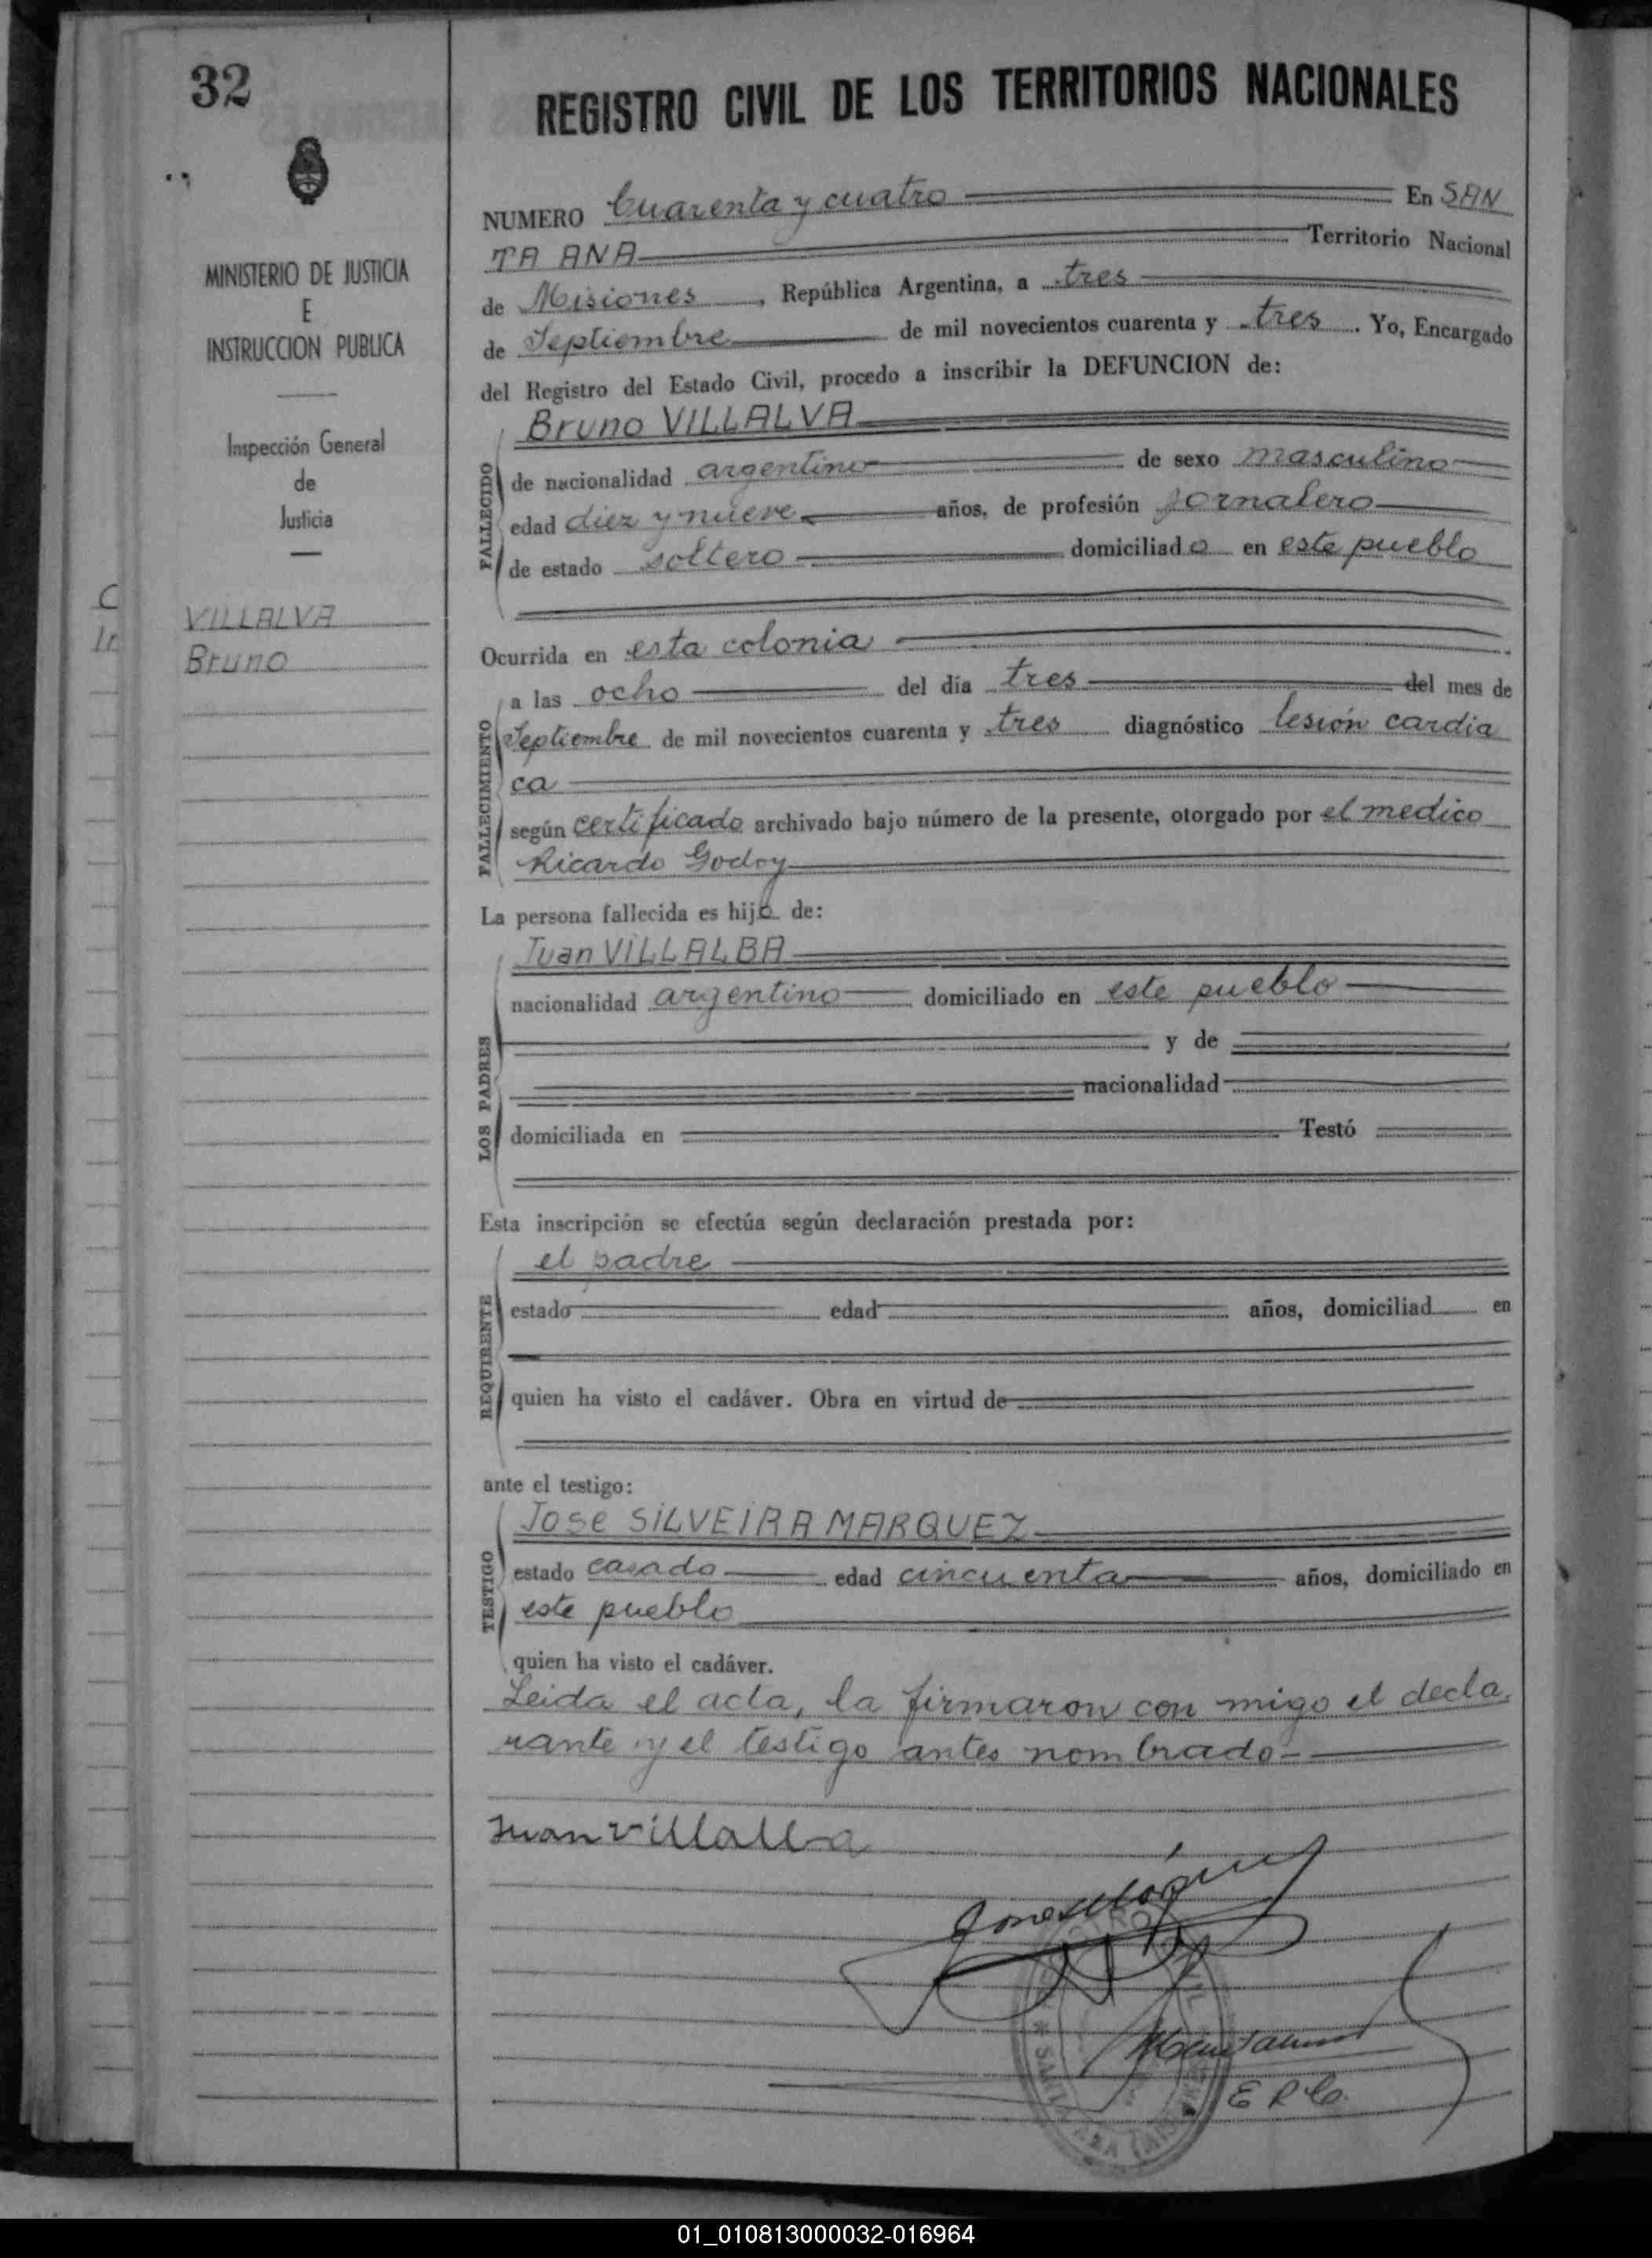 32
REGISTRO CIVIL DE LOS TERRITORIOS NACIONALES
MINISTERIO DE JUSTICIA
E
INSTRUCCION PUBLICA
Inspección General
de
Justicia
C
In
VILLALVA
Bruno
NUMERO Cuarenta y cuatro En SAN
TA ANA Territorio Nacional
de Misiones, República Argentina, a tres
de Septiembre de mil novecientos cuarenta y tres. Yo, Encargado
del Registro del Estado Civil, procedo a inscribir la DEFUNCION de:
FALLECIDO
Bruno VILLALVA
de nacionalidad argentino de sexo masculino
edad diez y nueve años, de profesión jornalero
de estado soltero domiciliado en este pueblo
Ocurrida en esta colonia
FALLECIMIENTO
a las ocho del día tres del mes de
Septiembre de mil novecientos cuarenta y tres diagnóstico lesión cardia
ca
según certificado archivado bajo número de la presente, otorgado por el medico
Ricardo Godoy
La persona fallecida es hijo de:
LOS PADRES
Juan VILLALBA
nacionalidad argentino domiciliado en este pueblo
y de
nacionalidad
domiciliada en Testó
Esta inscripción se efectúa según declaración prestada por:
REQUIRENTE
el padre
estado edad años, domiciliad en
quien ha visto el cadáver. Obra en virtud de
ante el testigo:
TESTIGO
Jose SILVEIRA MARQUEZ
estado casado edad cincuenta años, domiciliado en
este pueblo
quien ha visto el cadáver.
Leida el acta, la firmaron con migo el decla
rante y el testigo antes nombrado-
Juan Villalba
SANTA ANA
E R C.
01_010813000032-016964